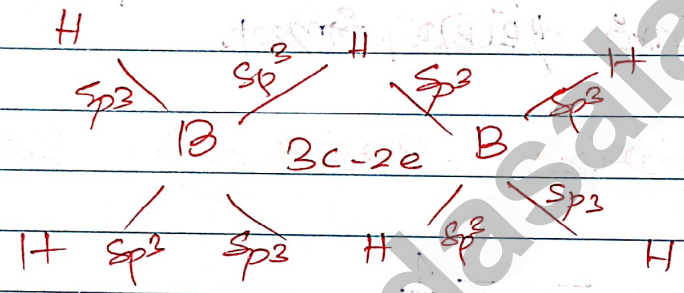 H H H
Sp3 Sp³ Sp³ Sp³
B 3c-2e B
Sp3
H Sp³ Sp3 H Sp³ H
dasala